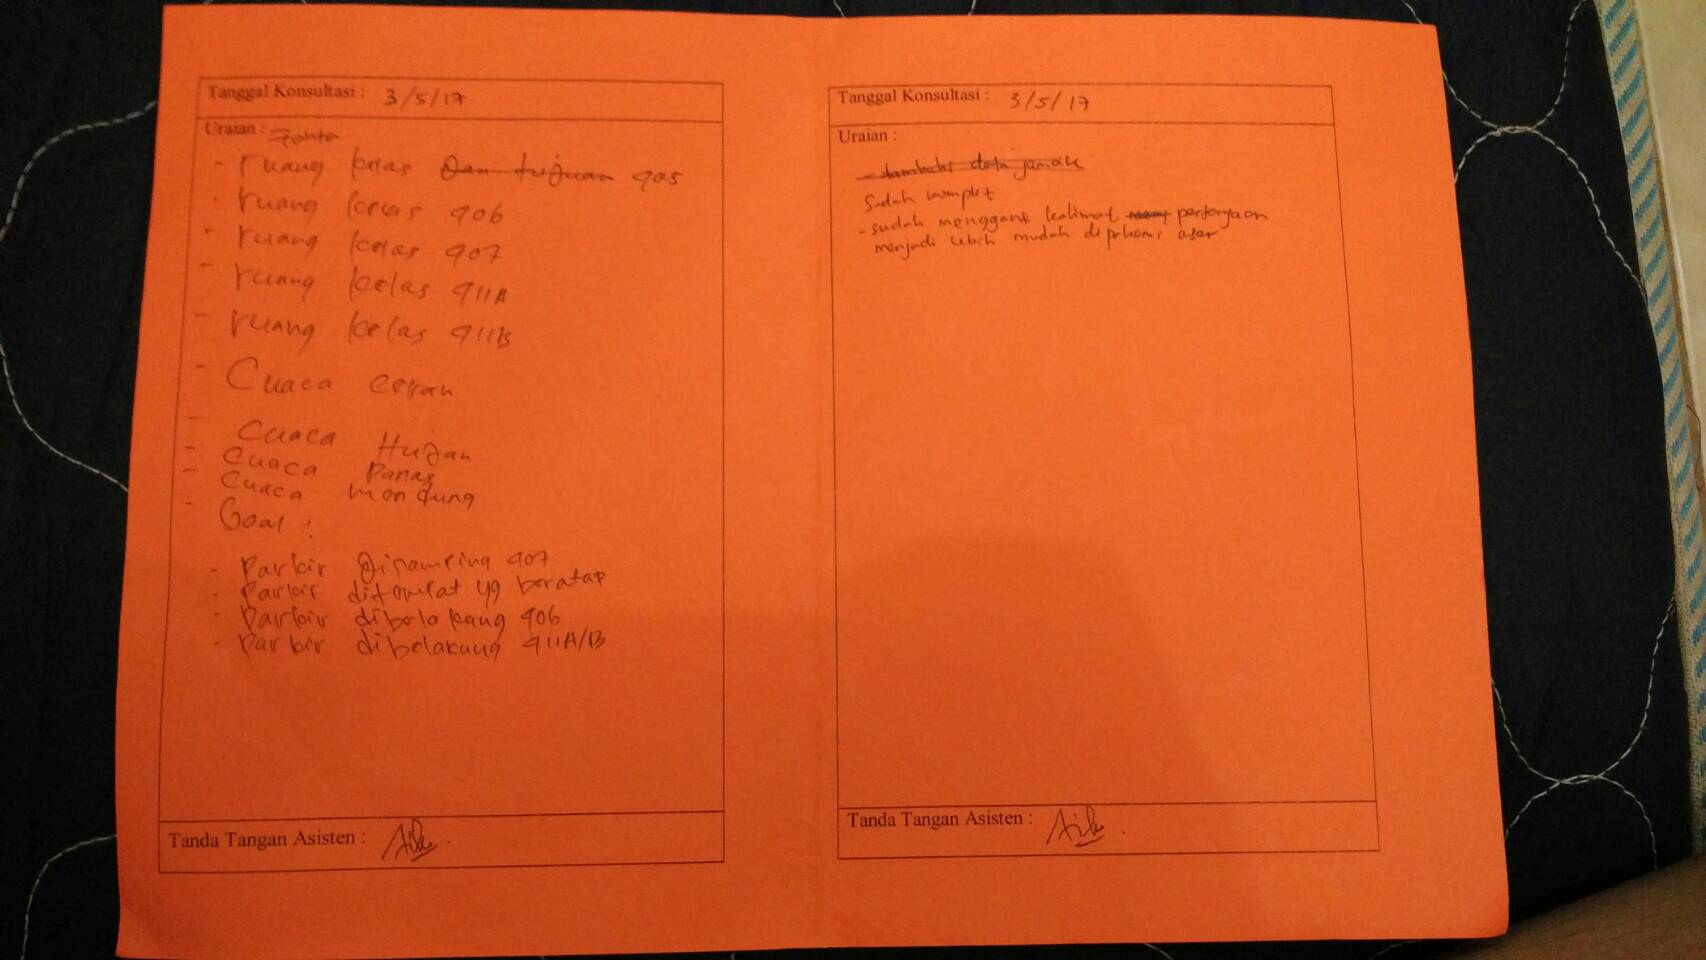 Tanggal Konsultasi : 3/5/17
Uraian : Fakta
- ruang kelas dan tujuan 905
- ruang kelas 906
- ruang kelas 907
- ruang kelas 911A
- ruang kelas 911B
- Cuaca cerah
- Cuaca Hujan
- Cuaca Panas
- Cuaca mendung
- Goal :
- Parkir disamping 907
- Parkir ditempat yg beratap
- Parkir dibelakang 906
- Parkir dibelakang 911A/B
Tanda Tangan Asisten :
Tanggal Konsultasi : 3/5/17
Uraian :
- tambahi data jamak
Sudah komplit
- sudah mengganti kalimat pertanyaan
menjadi lebih mudah dipahami user
Tanda Tangan Asisten :